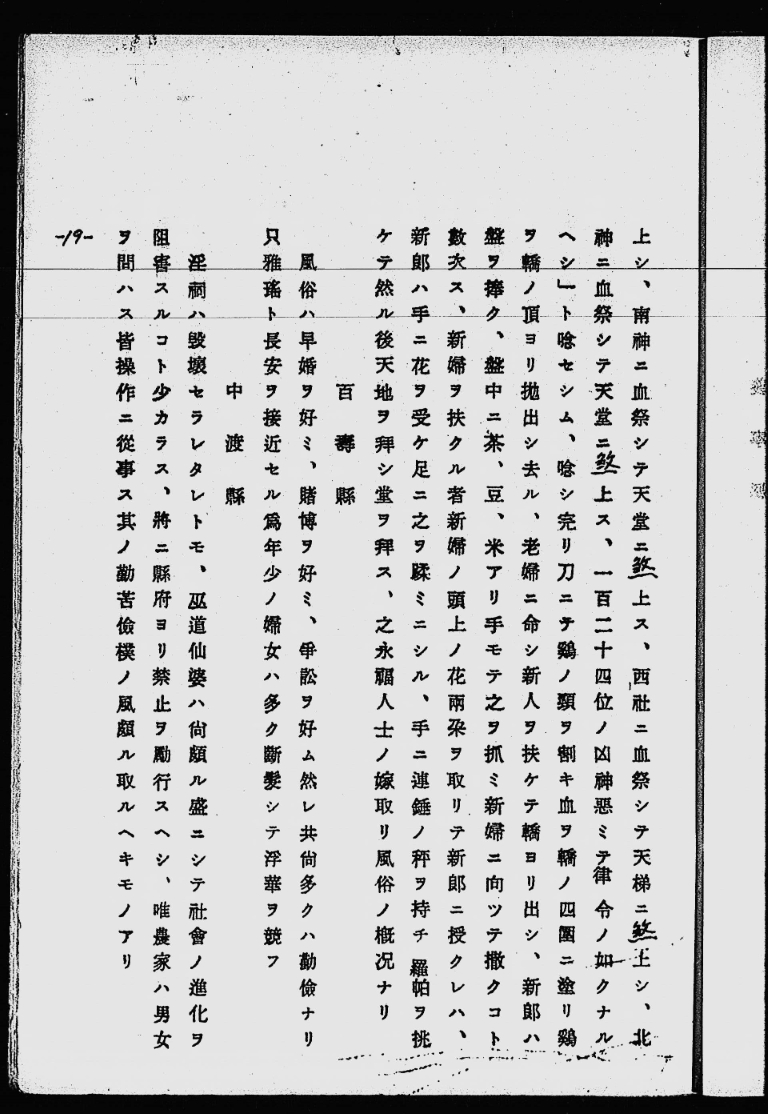 上シ、南神ニ血祭シテ天堂ニ煞上ス、西社ニ血祭シテ天梯ニ煞上シ、北
神ニ血祭シテ天堂ニ煞上ス、一百二十四位ノ凶神悪ミテ律令ノ如クナル
ヘシ」ト唸セシム、唸シ完リ刀ニテ鷄ノ頸ヲ割キ血ヲ轎ノ四圍ニ塗リ鷄
ヲ轎ノ頂ヨリ拋出シ去ル、老婦ニ命シ新人ヲ扶ケテ轎ヨリ出シ、新郎ハ
盤ヲ捧ク、盤中ニ茶、豆、米アリ手モテ之ヲ抓ミ新婦ニ向ツテ撒クコト
數次ス、新婦ヲ扶クル者新婦ノ頭上ノ花兩朶ヲ取リテ新郎ニ授クレハ、
新郎ハ手ニ花ヲ受ケ足ニ之ヲ蹂ミニシル、手ニ連錘ノ秤ヲ持チ羅帕ヲ挑
ケテ然ル後天地ヲ拜シ堂ヲ拜ス、之永福人士ノ嫁取リ風俗ノ槪況ナリ
百壽縣
風俗ハ早婚ヲ好ミ、賭博ヲ好ミ、爭訟ヲ好ム然レ共尙多クハ勤儉ナリ
只雅瑤ト長安ヲ接近セル爲年少ノ婦女ハ多ク斷髮シテ浮華ヲ競フ
中渡縣
淫祠ハ毀壞セラレタレトモ、巫道仙婆ハ尙頗ル盛ニシテ社會ノ進化ヲ
阻害スルコト少カラス、將ニ縣府ヨリ禁止ヲ勵行スヘシ、唯農家ハ男女
ヲ問ハス皆操作ニ從事ス其ノ勤苦儉樸ノ風頗ル取ルヘキモノアリ
-19-